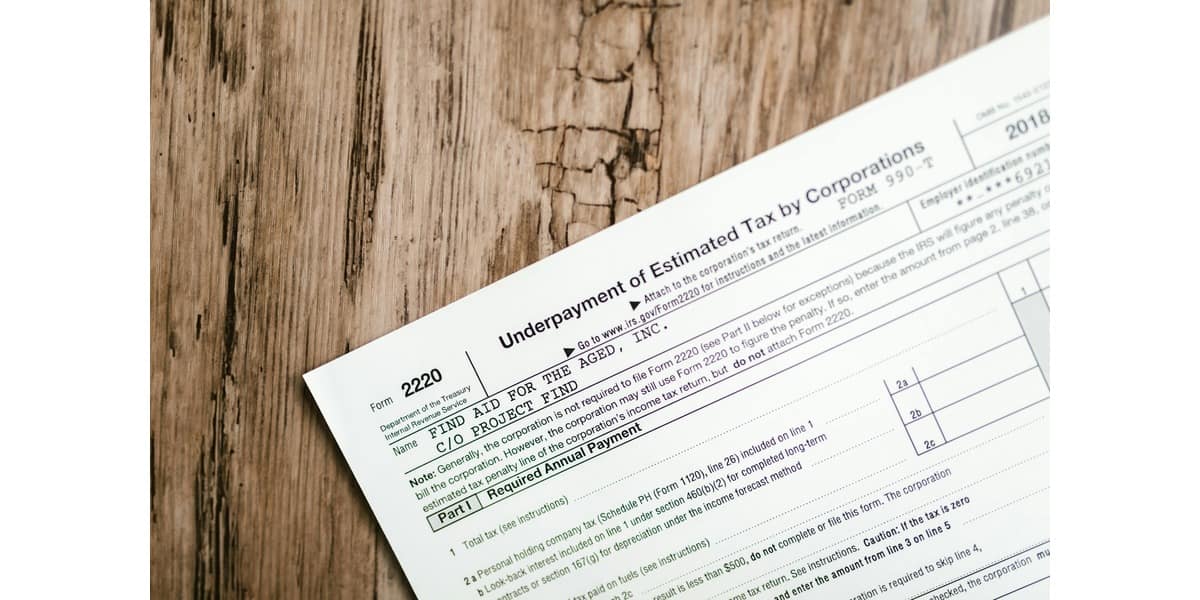 OMB No. 1545-0123
2018
Form 2220
Department of the Treasury
Internal Revenue Service
Underpayment of Estimated Tax by Corporations
FORM 990-T
▶ Attach to the corporation's tax return.
▶ Go to www.irs.gov/Form2220 for instructions and the latest information.
Name
FIND AID FOR THE AGED, INC.
C/O PROJECT FIND
Employer identification
**-***692
Note: Generally, the corporation is not required to file Form 2220 (see Part II below for exceptions) because the IRS will figure any penalty
bill the corporation. However, the corporation may still use Form 2220 to figure the penalty. If so, enter the amount from page 2, line 38,
estimated tax penalty line of the corporation's income tax return, but do not attach Form 2220.
Part I Required Annual Payment
1 Total tax (see instructions)
1
2 a Personal holding company tax (Schedule PH (Form 1120), line 26) included on line 1
2a
b Look-back interest included on line 1 under section 460(b)(2) for completed long-term
contracts or section 167(g) for depreciation under the income forecast method
2b
tax paid on fuels (see instructions)
2c
2c
result is less than $500, do not complete or file this form. The corporation
tax return. See instructions. Caution: If the tax is zero
and enter the amount from line 3 on line 5
is required to skip line 4,
checked, the corporation